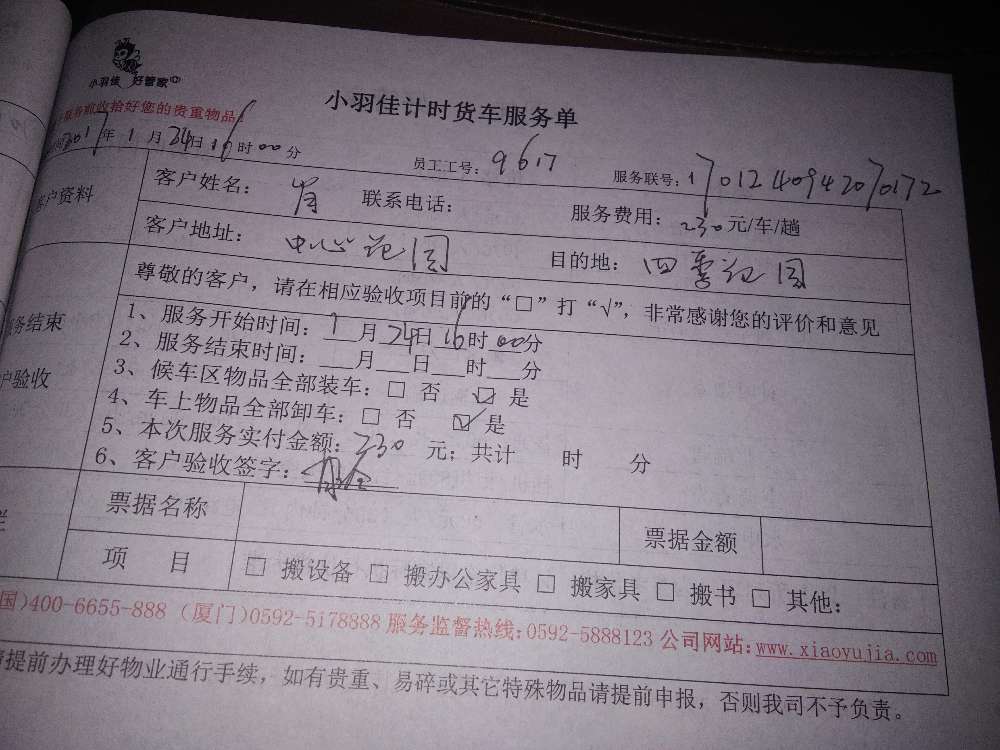 小羽佳 好管家
小羽佳计时货车服务单
服务前收拾好您的贵重物品!
2017年1月24日16时00分
员工工号：9617
服务联号：1701240942070172
客户资料
客户姓名：肖 联系电话： 服务费用：230元/车/趟
客户地址：中心花园 目的地：四季花园
尊敬的客户，请在相应验收项目前的“□”打“√”，非常感谢您的评价和意见
服务结束
户验收
1、服务开始时间：1月24日16时00分
2、服务结束时间：___月___日___时___分
3、候车区物品全部装车：□ 否 ☑ 是
4、车上物品全部卸车：□ 否 ☑ 是
5、本次服务实付金额：230 元；共计 时 分
6、客户验收签字：
票据名称 票据金额
栏
项 目 □ 搬设备 □ 搬办公家具 □ 搬家具 □ 搬书 □ 其他：
国)400-6655-888 (厦门)0592-5178888 服务监督热线:0592-5888123 公司网站:www.xiaoyujia.com
请提前办理好物业通行手续，如有贵重、易碎或其它特殊物品请提前申报，否则我司不予负责。